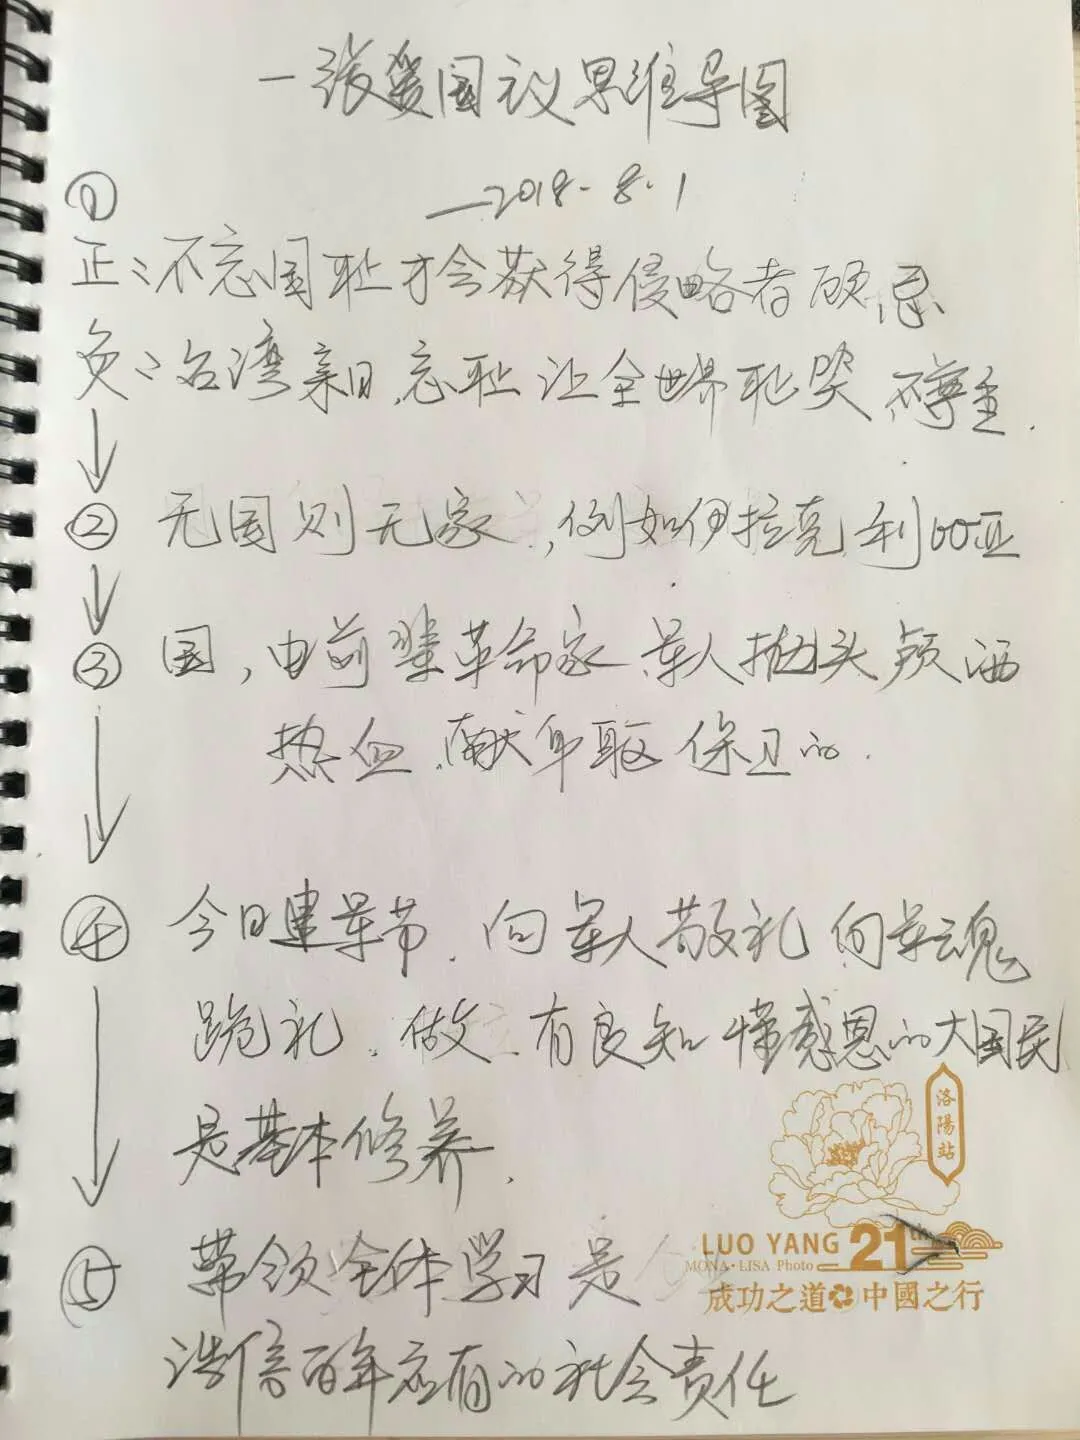 一张爱国议思维导图
—2018-8.1
①
正:不忘国耻才会获得侵略者顾忌
负:台湾亲日,忘耻让全世界耻笑 不尊重.
② 无国则无家,例如伊拉克 利比亚
③ 国,由前辈革命家 军人抛头颅洒
热血 献年躯 保卫的.
④ 今日建军节.向军人敬礼 向军魂
跪礼.做 有良知懂感恩的大国民
是基本修养.
洛陽站
LUO YANG 21th
MONA·LISA Photo
成功之道 中國之行
⑤ 带领全体学习是
浩信百年应有的社会责任